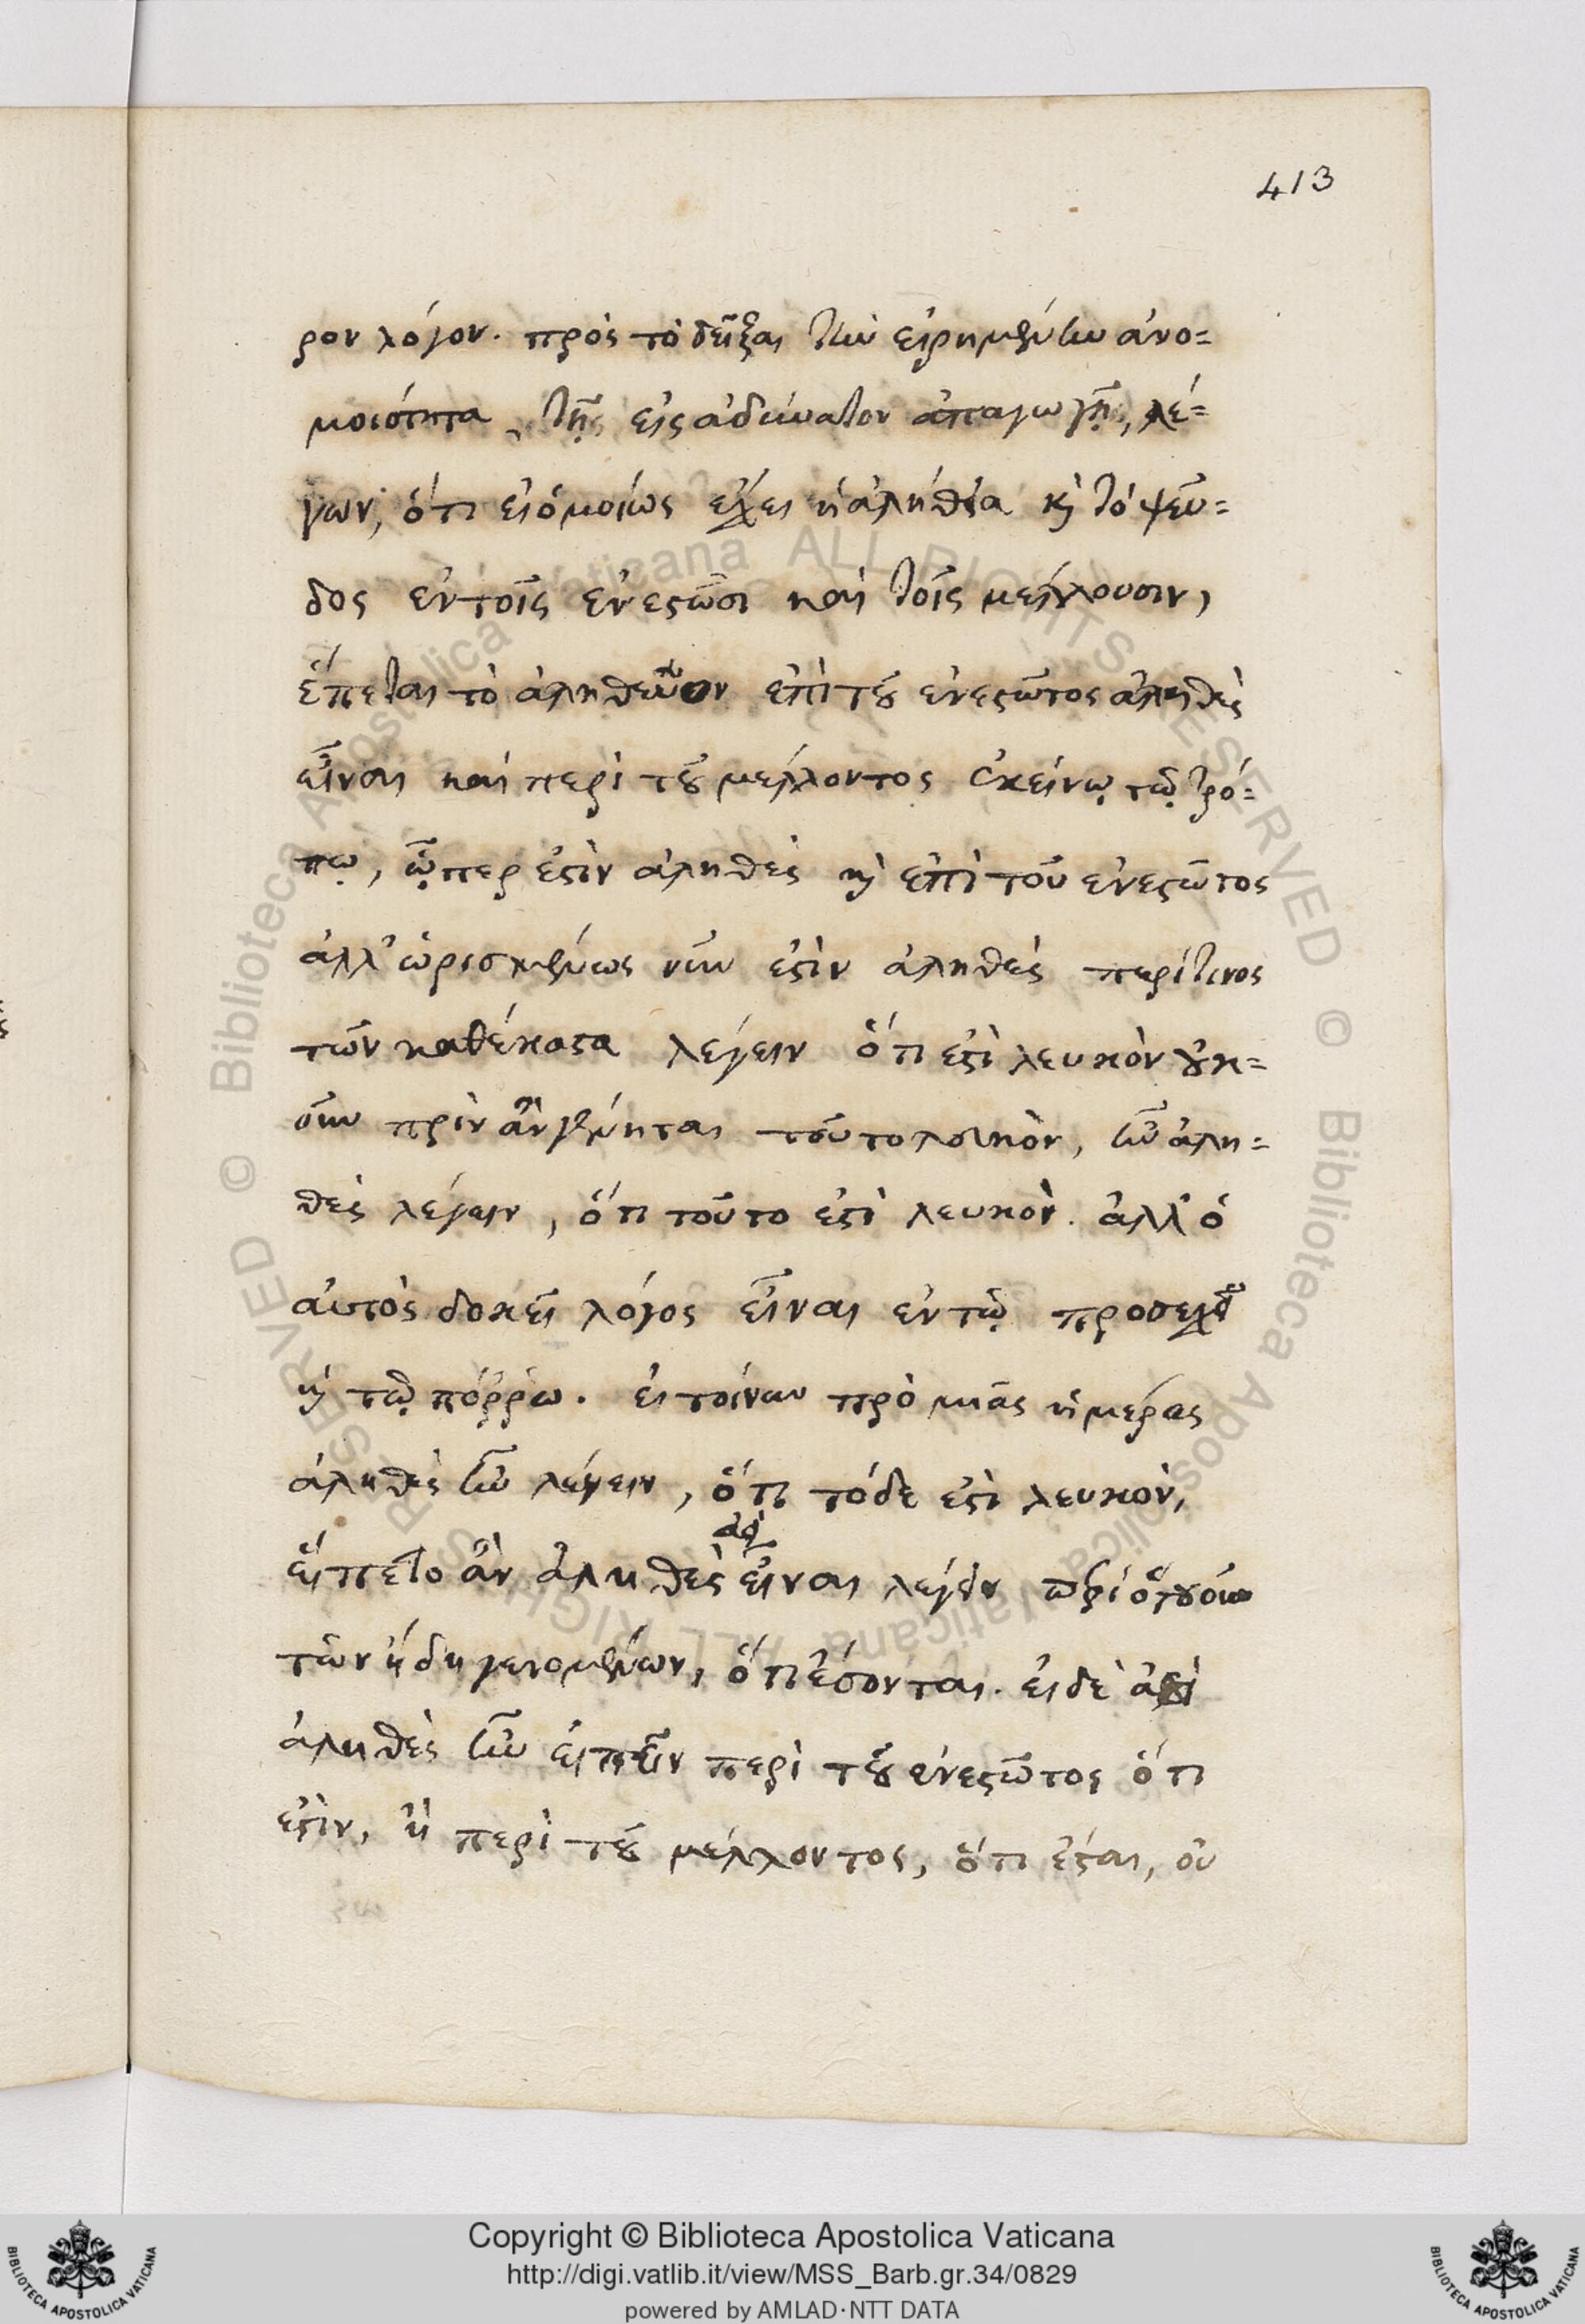 413
ρον λόγον. πρὸς τὸ δεῖξαι τὴν εἰρημένην ἀνο=
μοιότητα, τῇ εἰς ἀδύνατον ἀπαγωγῇ, λέ=
γων, ὅτι εἰ ὁμοίως ἔχει ἡ ἀλήθεια κὶ τὸ ψεῦ=
δος ἐν τοῖς ἐνεστῶσι καὶ τοῖς μέλλουσιν,
ἕπεται τὸ ἀληθεῦον ἐπὶ τοῦ ἐνεστῶτος ἀληθὲς
εἶναι καὶ περὶ τοῦ μέλλοντος ἐκείνῳ τῷ τρό=
πῳ, ᾧπερ ἐστὶν ἀληθὲς κὶ ἐπὶ τοῦ ἐνεστῶτος
ἀλλ' ὡρισμένως νῦν ἐστὶν ἀληθὲς περί τινος
τῶν καθέκαστα λέγειν ὅτι ἐστὶ λευκὸν οὐκ=
οῦν πρὶν ἂν γένηται τοῦτο λευκὸν, ἦν ἀλη=
θὲς λέγειν, ὅτι τοῦτο ἐστὶ λευκὸν. ἀλλ' ὁ
αὐτὸς δοκεῖ λόγος εἶναι ἐν τῷ προσεχεῖ
κὶ τῷ πόρρω. εἰ τοίνυν πρὸ μιᾶς ἡμέρας
ἀληθὲς ἦν λέγειν, ὅτι τόδε ἐστὶ λευκὸν,
ἀεὶ
εἵπετο ἂν ἀληθὲς εἶναι λέγειν περὶ ὁτουοῦν
τῶν ἤδη γενομένων, ὅτι ἔσονται. εἰ δὲ ἀεὶ
ἀληθὲς ἦν εἰπεῖν περὶ τοῦ ἐνεστῶτος ὅτι
ἐστὶν, ἢ περὶ τοῦ μέλλοντος, ὅτι ἔσται, οὐ
© Biblioteca Apostolica Vaticana ALL RIGHTS RESERVED © Biblioteca Apostolica Vaticana ALL RIGHTS RESERVED
Copyright © Biblioteca Apostolica Vaticana
http://digi.vatlib.it/view/MSS_Barb.gr.34/0829
powered by AMLAD·NTT DATA
BIBLIOTECA APOSTOLICA VATICANA
BIBLIOTECA APOSTOLICA VATICANA